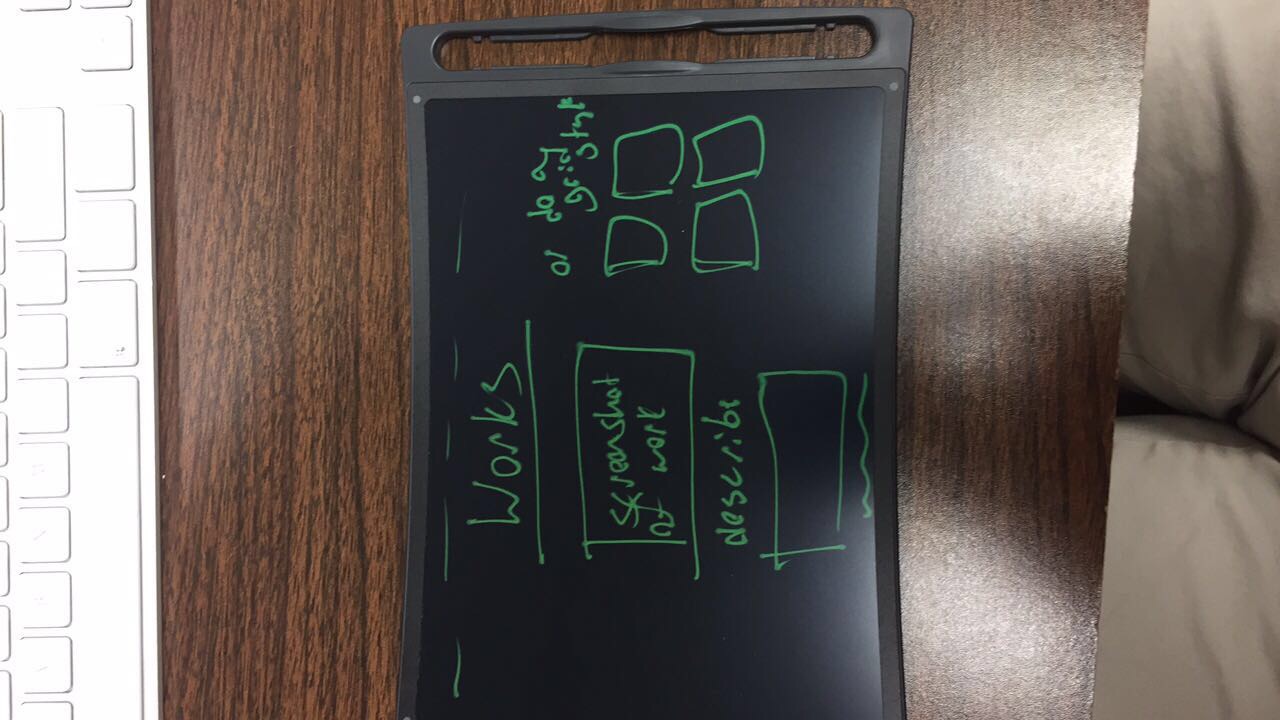 Works
screenshot
of work
describe
or do a
grid style